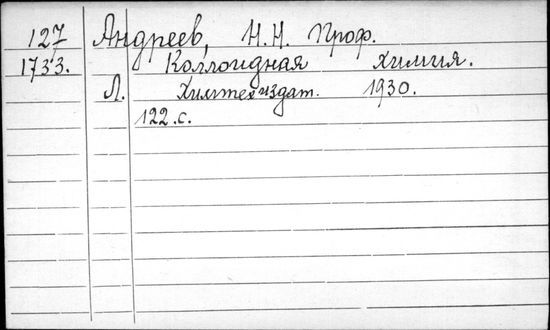 127 Андреев, Н.Н. Проф.
1733. Коллоидная химия.
Л. Химтехиздат. 1930.
122.с.